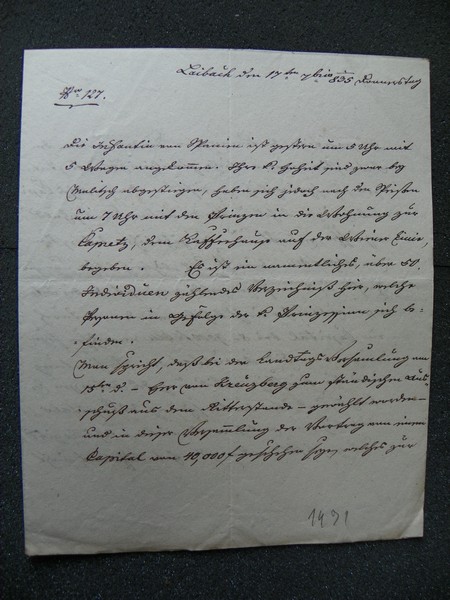 Laibach den 17ten 7bris 835 Donnerstag
Nro 127.
Die Infantin von Spanien ist gestern um 5 Uhr mit
5 Wagen angekommen. Ihre K. Hoheit sind zwar bey
Malitsch abgestiegen, haben sich jedoch nach dem Speisen
um 7 Uhr mit den Prinzen in die Wohnung zur
dem Kaffeehause auf der Wiener Linie,
begeben. Es ist ein namentliches, über 50
Individuen zählendes Verzeichniß hier, welche
Personen im Gefolge der K. Prinzessinn sich be-
finden.
Man spricht, daß bei der Landtags Versamlung am
15ten d. - Herr von Kreuzberg zum ständischen Aus-
schuß aus dem Ritterstande - gewählt worden -
und in dieser Versammlung der Vortrag von einem
Capital von 40,000 f geschehen sey, welches zur
1491